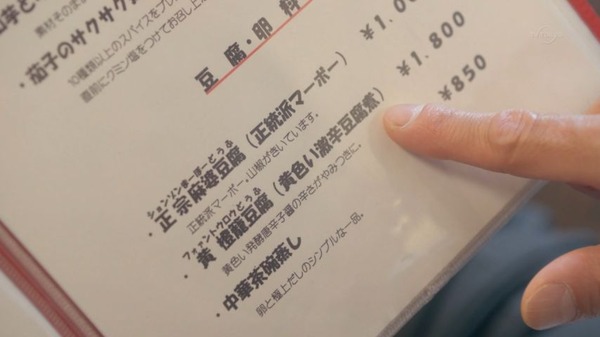 ・茄子のサクサク
10種類以上のスパイスをプレ
直前にクミン塩をつけてお召し上
豆腐・卵 料
シェンゾンまーぼーどうふ
・正宗麻婆豆腐(正統派マーボー) ¥1.0
正統派マーボー・山椒がきいています。
ファントウロウとうふ
・黄橙龍豆腐(黄色い激辛豆腐煮) ¥1.800
黄色い発酵唐辛子醤の辛さがやみつきに。
・中華茶碗蒸し ¥850
卵と極上だしのシンプルな一品。